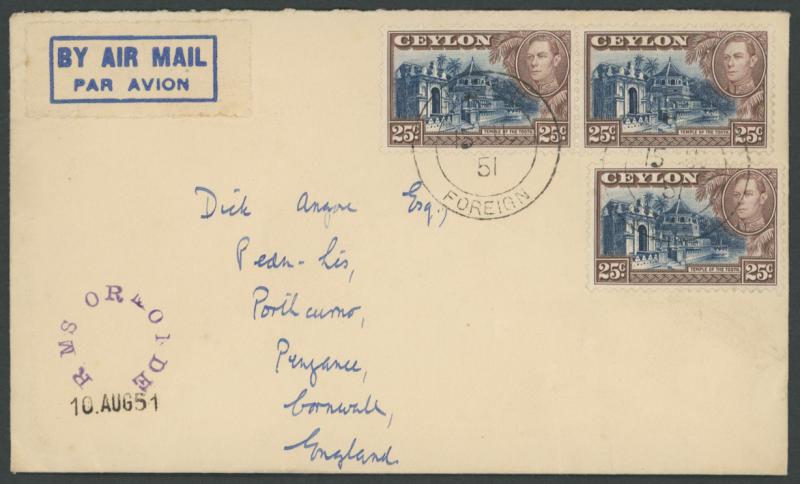 BY AIR MAIL
PAR AVION
CEYLON
25c TEMPLE OF THE TOOTH. 25c
CEYLON
25c TEMPLE OF THE TOOTH. 25c
CEYLON
25c TEMPLE OF THE TOOTH. 25c
15
51
FOREIGN
15
51
Dick Esq.,
Pedn-Lis,
Porthcurno,
Penzance,
Cornwall,
England.
RMS ORFOIDE
10.AUG51